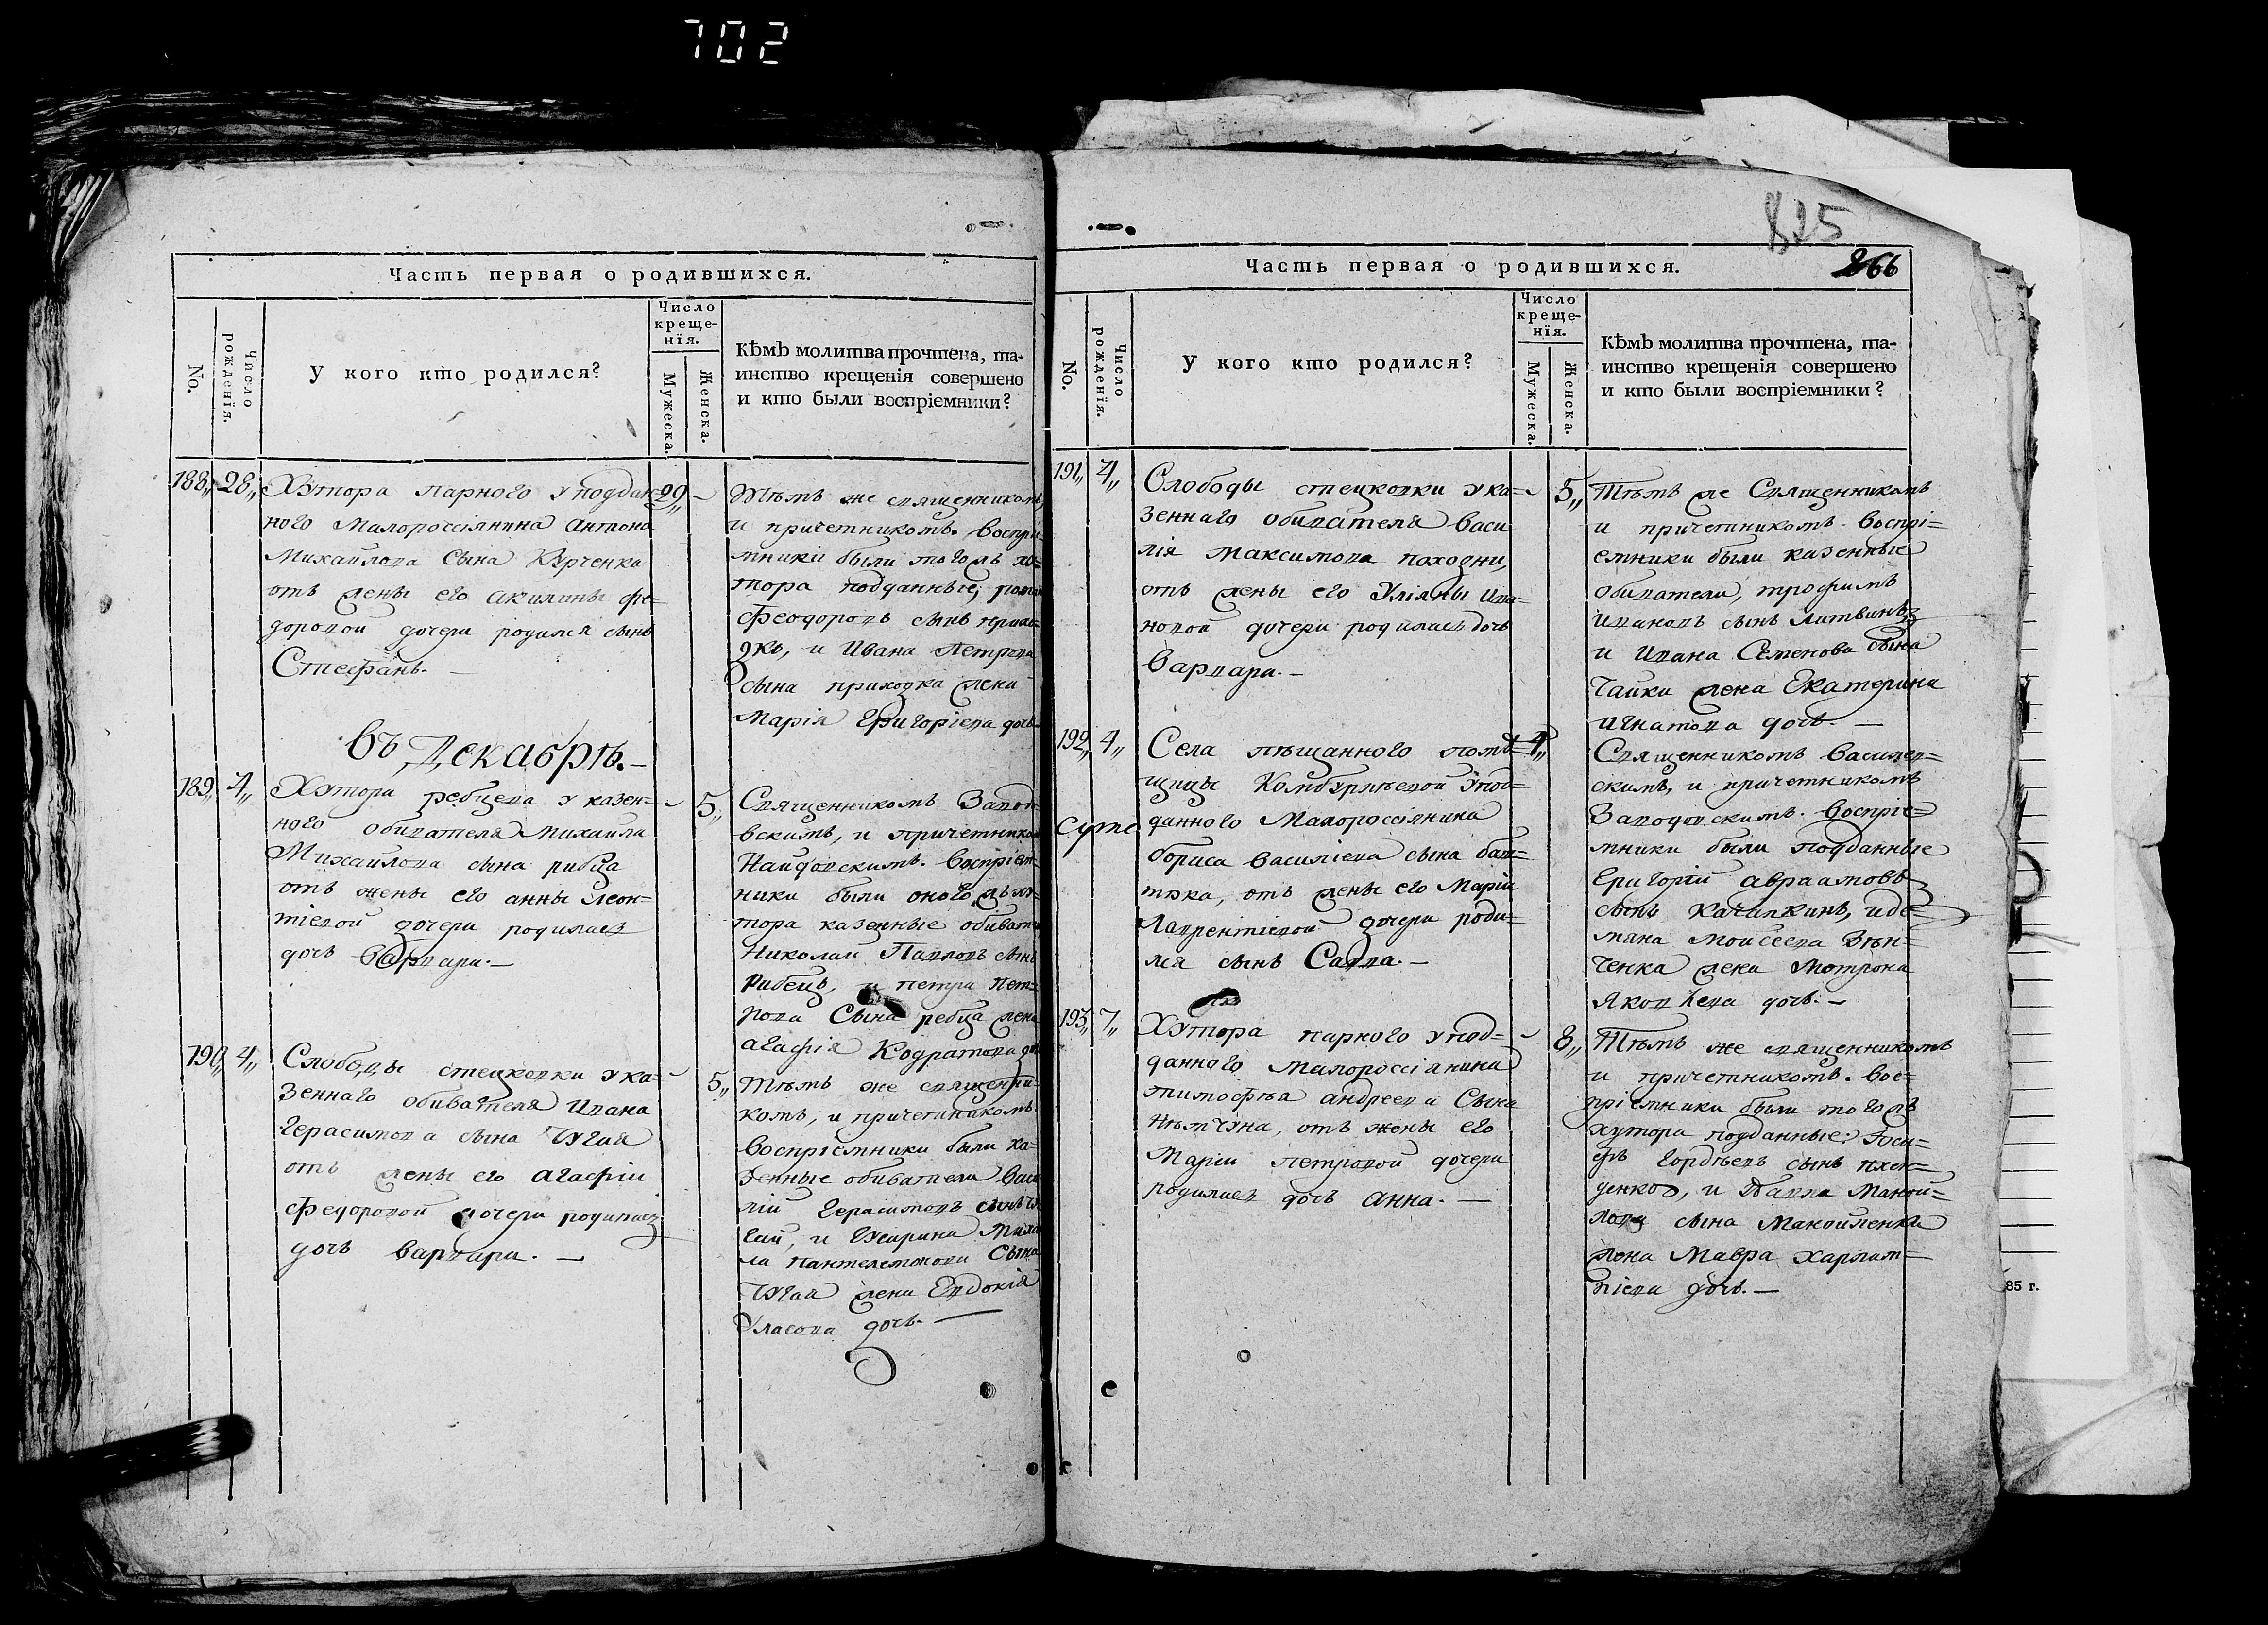 702
Часть первая о родившихся.
No.
Число рожденія.
У кого кто родился?
Число
креще-
нія.
Мужеска.
Женска.
Кѣмъ молитва прочтена, та-
инство крещенія совершено
и кто были воспріемники?
188,, 28,, Хутора парного у поддан- 29,, -
ного Малороссіянина Антона
Михайлова сына Курченка
отъ жены его Акилины Фе-
доровой дочери родился сынъ
Стефанъ. —
Тѣмъ же священникомъ,
и причетникомъ. Воспріе
мники были того жъ ху-
тора подданные,
Феодоровъ сынъ
и Ивана Петрова
сына приходка жена
Марія Григоріева дочь
Въ Декабрѣ. —
189,, 4,, Хутора ребцева у казен- - 5,,
ного обывателя Михаила
Михайлова сына рибца
отъ жены его Анны Леон-
тіевой дочери родилась
дочь Варвара. —
Священникомъ Завод-
вскимъ, и причетником
Найдовскимъ. Воспріем-
ники были оного жъ ху-
тора казенные обывате
Николай Павловъ сынъ
Рибецъ, и петра Пет-
рова Сына ребца жена
Агафія Кодратова до
190,, 4,, Слободы стецковки у ка- - 5,,
зеннаго обывателя Ивана
Герасимова сына Чугая
отъ жены его Агафіи
Федоровой дочери родилась
дочь Варвара. —
Тѣмъ же священни-
комъ, и причетникомъ.
Воспріемники были ка-
зенные обыватели Васи
лій Герасимовъ сынъ Чу
гай, и
ла Пантелемонова Сына
Чугая жена Евдокія
Уласова дочь. —
825
266
Часть первая о родившихся.
No.
Число рожденія.
У кого кто родился?
Число
креще-
нія.
Мужеска.
Женска.
Кѣмъ молитва прочтена, та-
инство крещенія совершено
и кто были воспріемники?
191,, 4,, Слободы стецковки у ка- - 5,,
зеннаго обывателя Васи
лія Максимова походни,
отъ жены его Уліяны Ива-
новой дочери родилась дочь
Варвара. —
Тѣмъ же Священникомъ
и причетникомъ. Воспрі-
емники были казенные
обыватели, трофимъ
Ивановъ сынъ Литвинъ
и Ивана Семенова сына
Чайки жена Екатерина
Игнатова дочь. —
192,, 4,, Села пѣщанного помѣ- 4,,
щицы Комбурлѣевой у под-
данного Малороссіянина
Бориса Василіева сына
отъ жены его Маріи
Лаврентіевой дочери роди-
лся сынъ Савва. —
Священникомъ Василев-
скимъ, и причетникомъ
Заводовскимъ. Воспріе-
мники были подданные
Григорій Авраамовъ
сынъ Качанкинъ, и де-
мяна Моисеева
ченка жена Мотрона
Яковлева дочь. —
193,, 7,, Хутора парного у под- - 8,,
данного Малороссіянина
тимофѣя Андреева Сына
Нѣмчина, отъ жены его
Маріи Петровой дочери
родилась дочь Анна. —
Тѣмъ же священникомъ
и причетникомъ. Вос-
пріемники были того жъ
хутора подданные: Іоси-
фъ Гордѣевъ сынъ
ценко, и Павла Манои-
лова сына Манойленка
жена Мавра Харлам-
піева дочь. —
85 г.